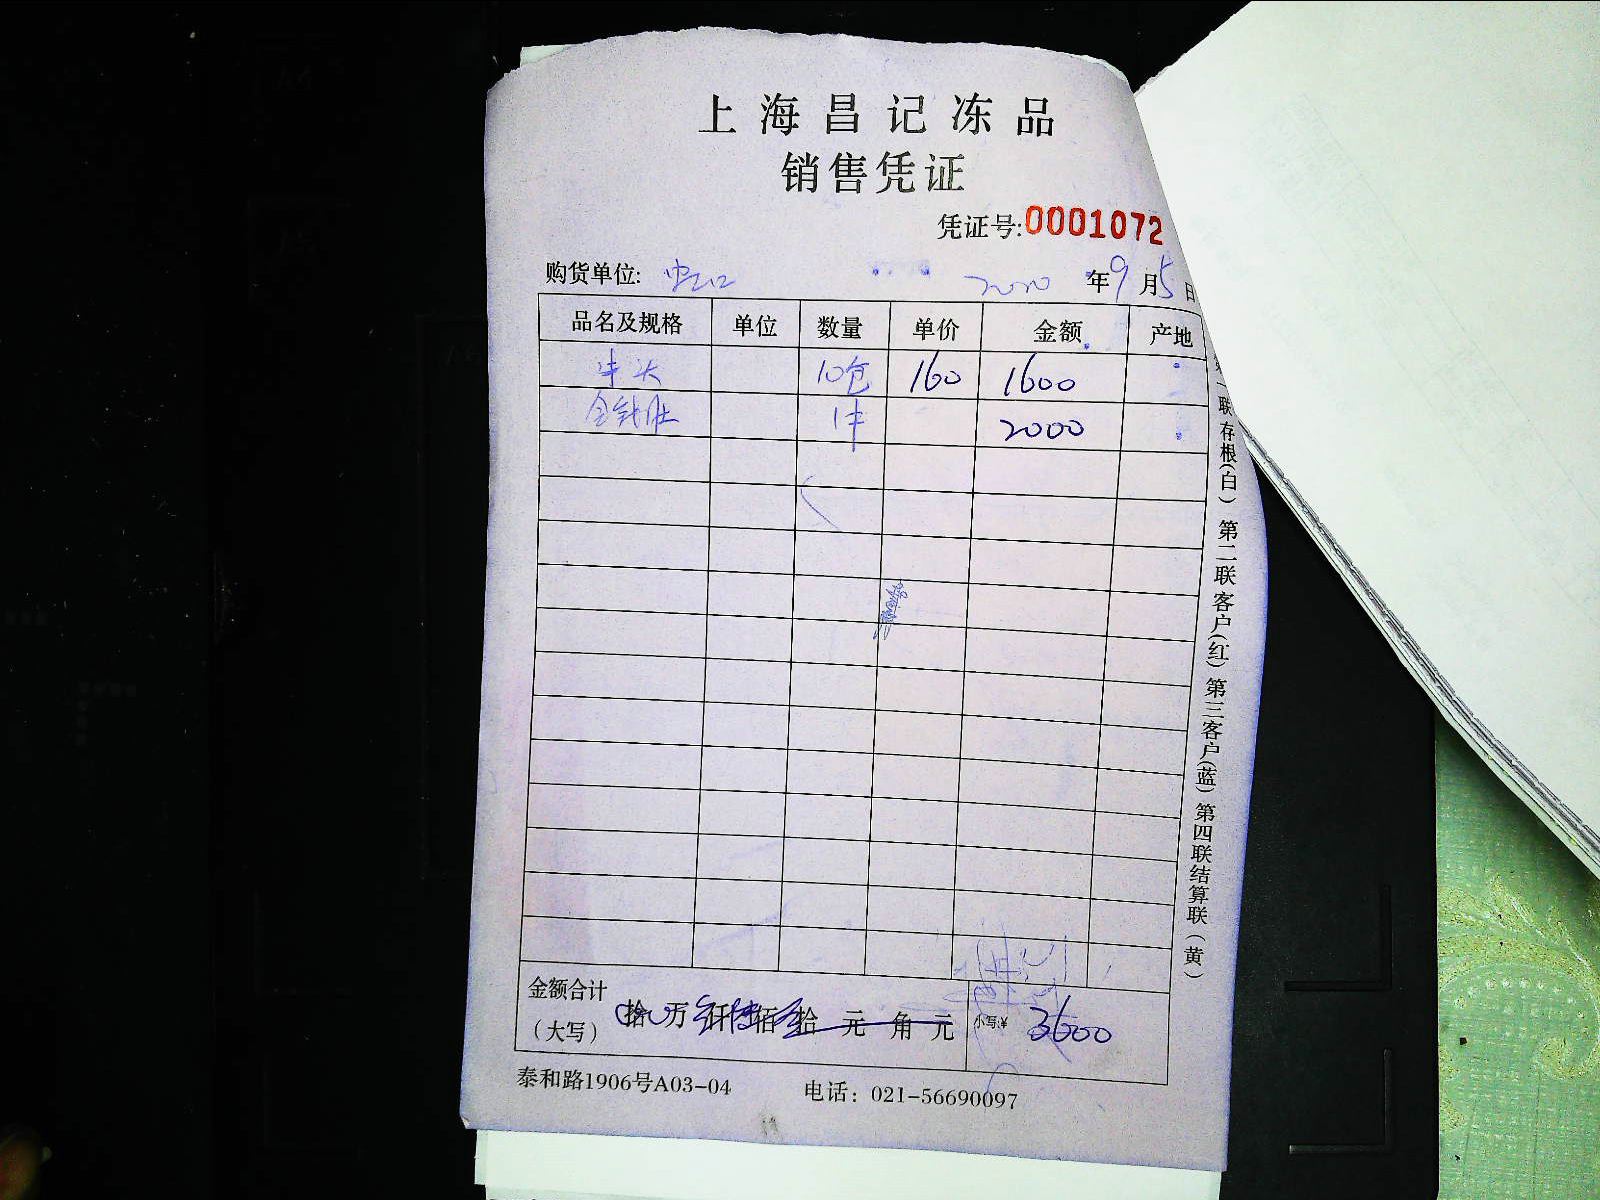 上海昌记冻品
销售凭证
凭证号:0001072
购货单位: 虹口 2020 年 9 月 5 日
品名及规格 单位 数量 单价 金额 产地
牛头 10包 160 1600
金钱肚 1件 2000
金额合计
(大写) 拾 万 仟 佰 拾 元 角 元 小写:¥ 3600
泰和路1906号A03-04 电话: 021-56690097
第一联存根(白) 第二联客户(红) 第三客户(蓝) 第四联结算联(黄)